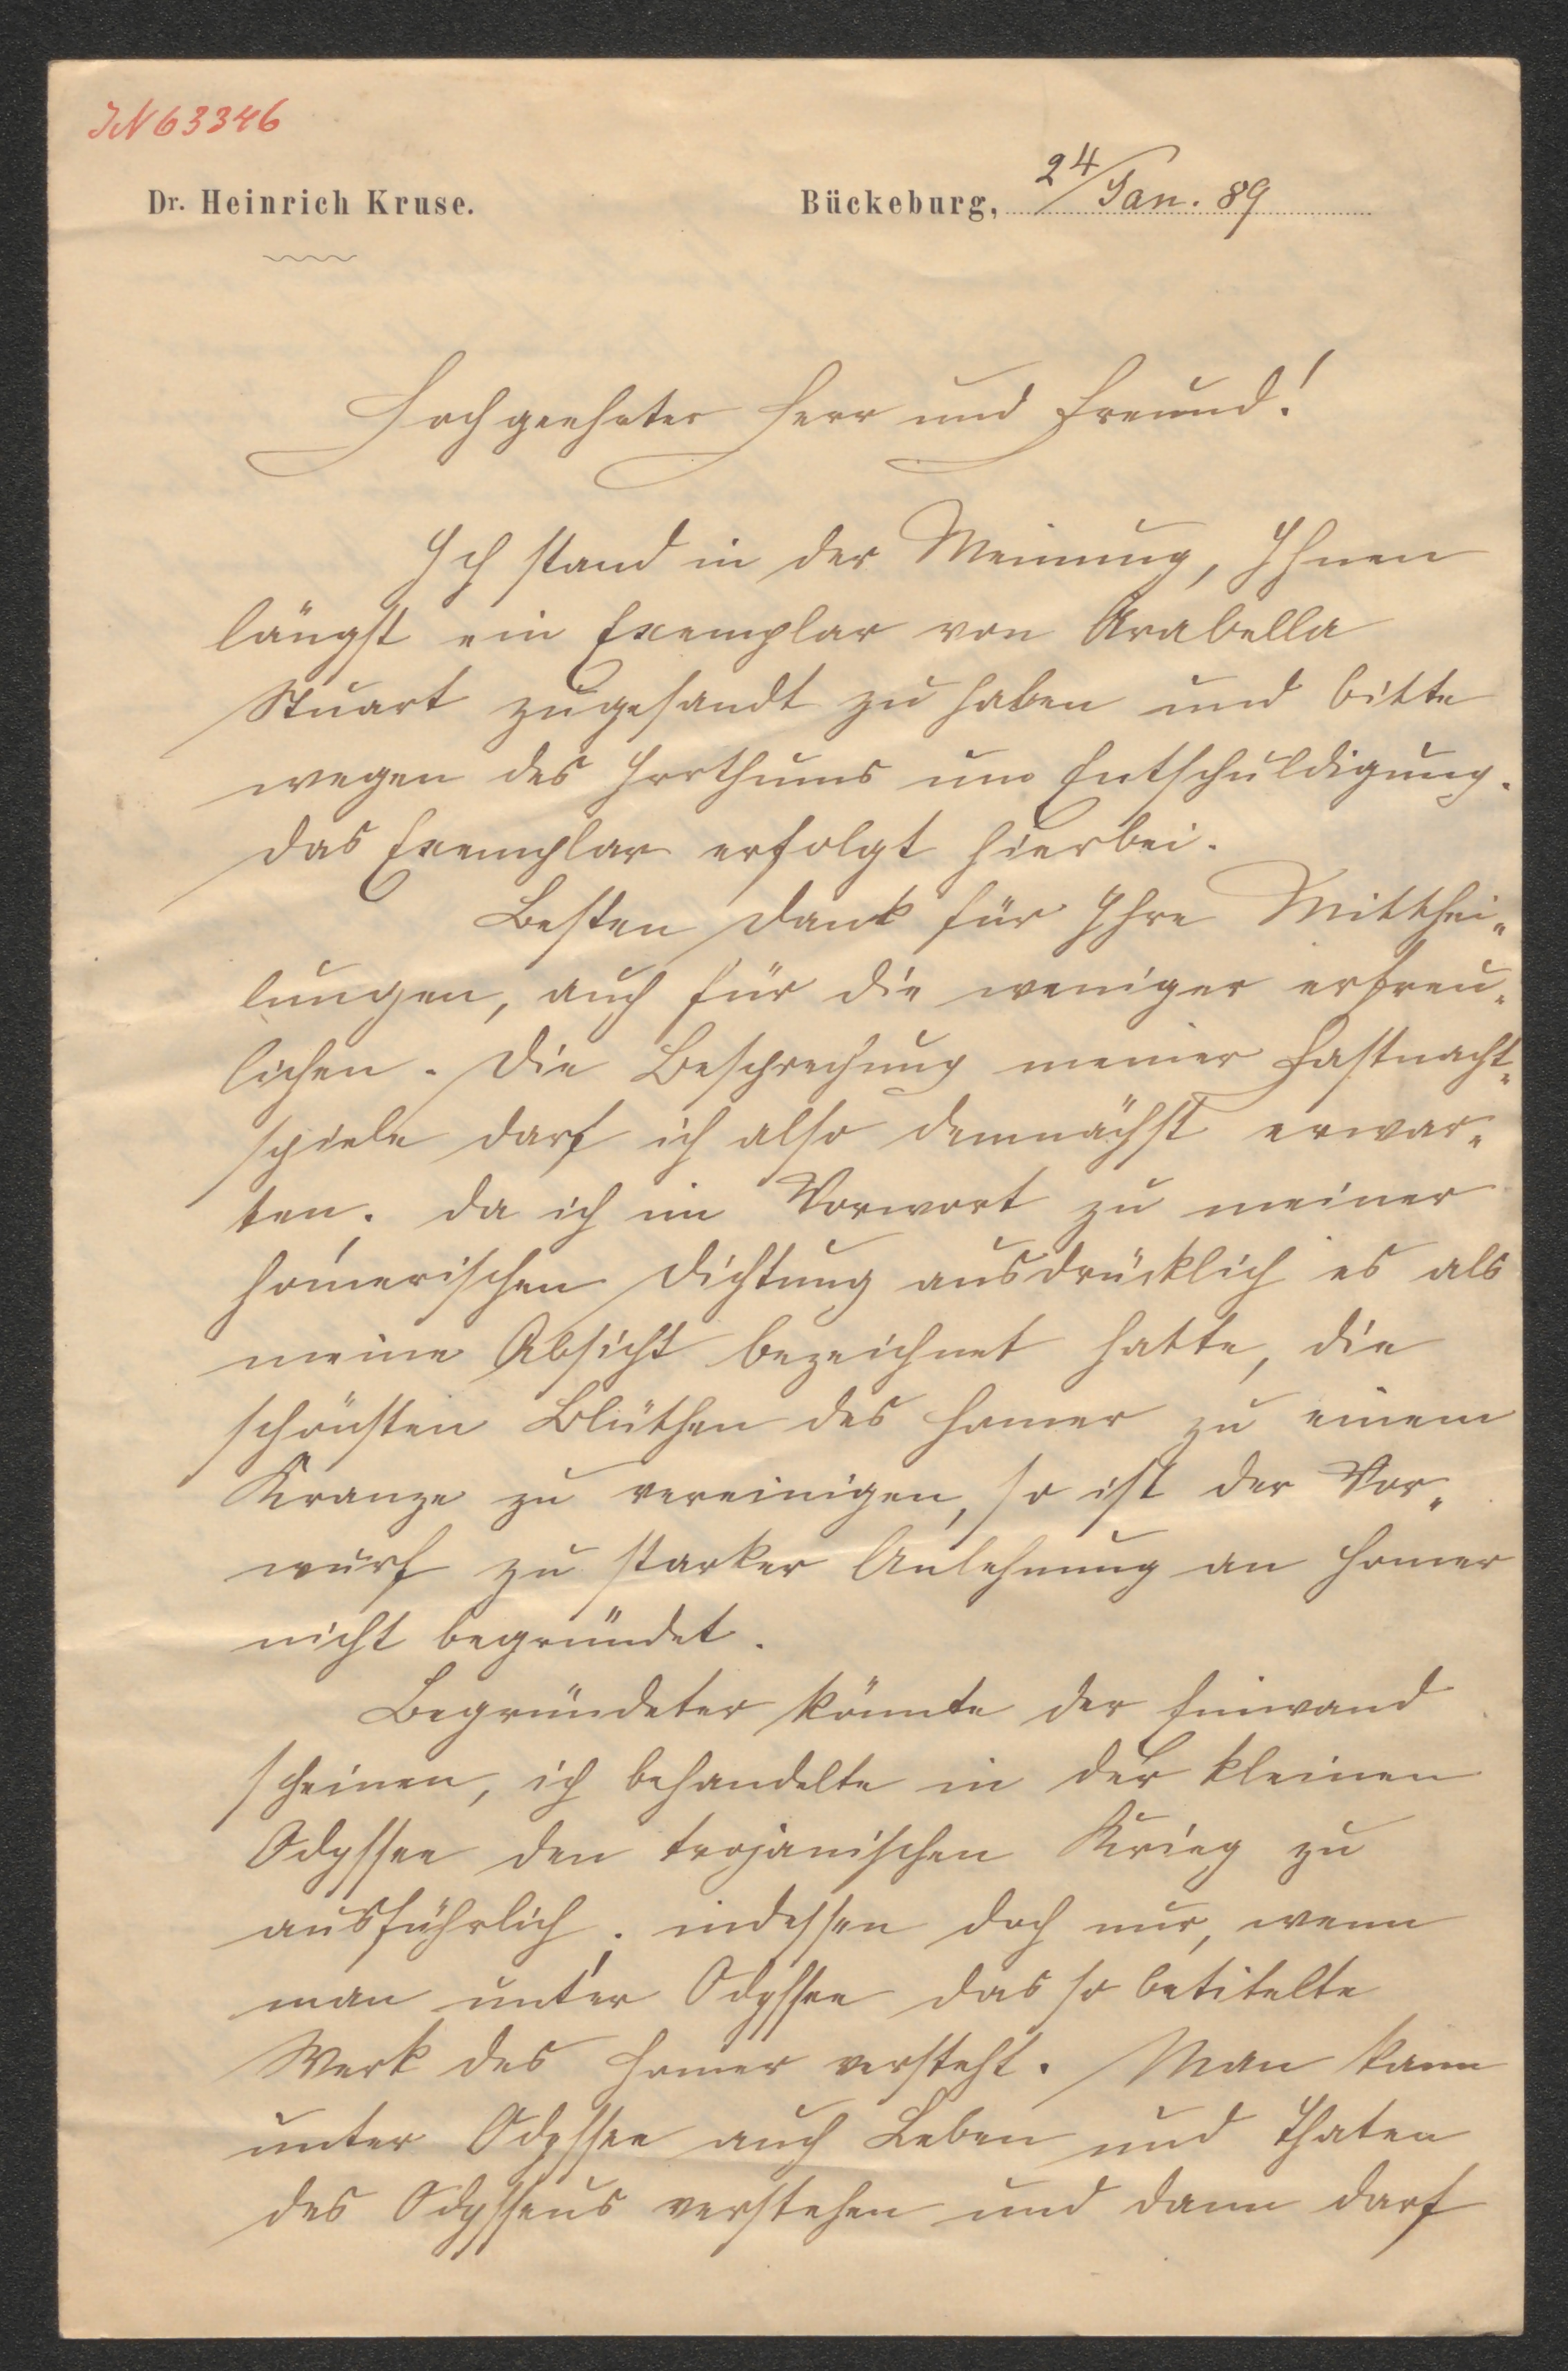 IN 63346
Dr. Heinrich Kruse.
Bückeburg, 24/Jan. 89
Hochgeehrter Herr und Freund!
Ich stand in der Meinung, Ihnen
längst ein Exemplar von Arabella
Stuart zugesandt zu haben und bitte
wegen des Irrthums um Entschuldigung.
Das Exemplar erfolgt hierbei.
Besten Dank für Ihre Mitthei-
lungen, auch für die weniger erfreu-
lichen. Die Besprechung meiner Fastnacht-
spiele darf ich also demnächst erwar-
ten. Da ich im Vorwort zu meiner
homerischen Dichtung ausdrücklich es als
meine Absicht bezeichnet hatte, die
schönsten Blüthen des Homer zu einem
Kranze zu vereinigen, so ist der Vor-
wurf zu starker Anlehnung an Homer
nicht begründet.
Begründeter könnte der Einwand
scheinen, ich behandelte in der kleinen
Odyssee den trojanischen Krieg zu
ausführlich; indessen doch nur, wenn
man unter Odyssee das so betitelte
Werk des Homer versteht. Man kann
unter Odyssee auch Leben und Thaten
des Odysseus verstehen und dann darf